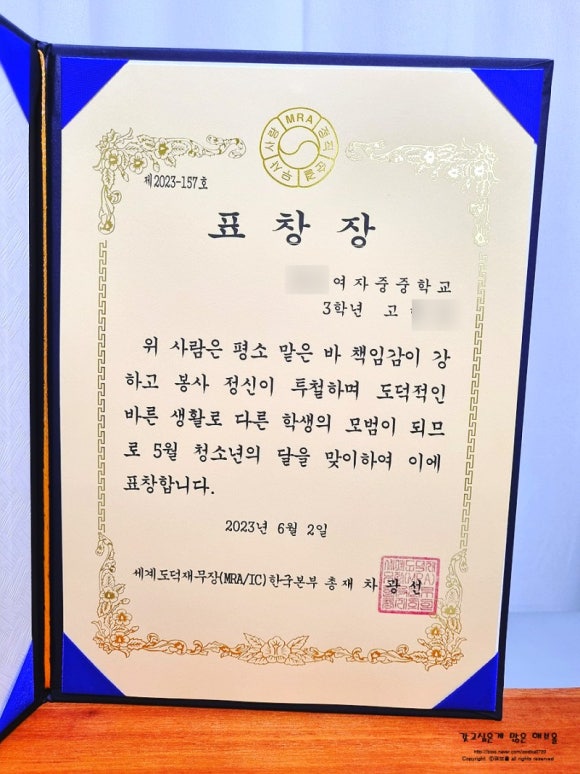 MRA 정직 순결 무사 사랑
제2023-157호
표 창 장
여 자 중 중 학 교
3학년 고
위 사람은 평소 맡은 바 책임감이 강
하고 봉사 정신이 투철하며 도덕적인
바른 생활로 다른 학생의 모범이 되므
로 5월 청소년의 달을 맞이하여 이에
표창합니다.
2023년 6월 2일
세계도덕재무장(MRA/IC)한국본부 총재 차 광 선
갖고싶은게 많은
Copyright all rights reserved